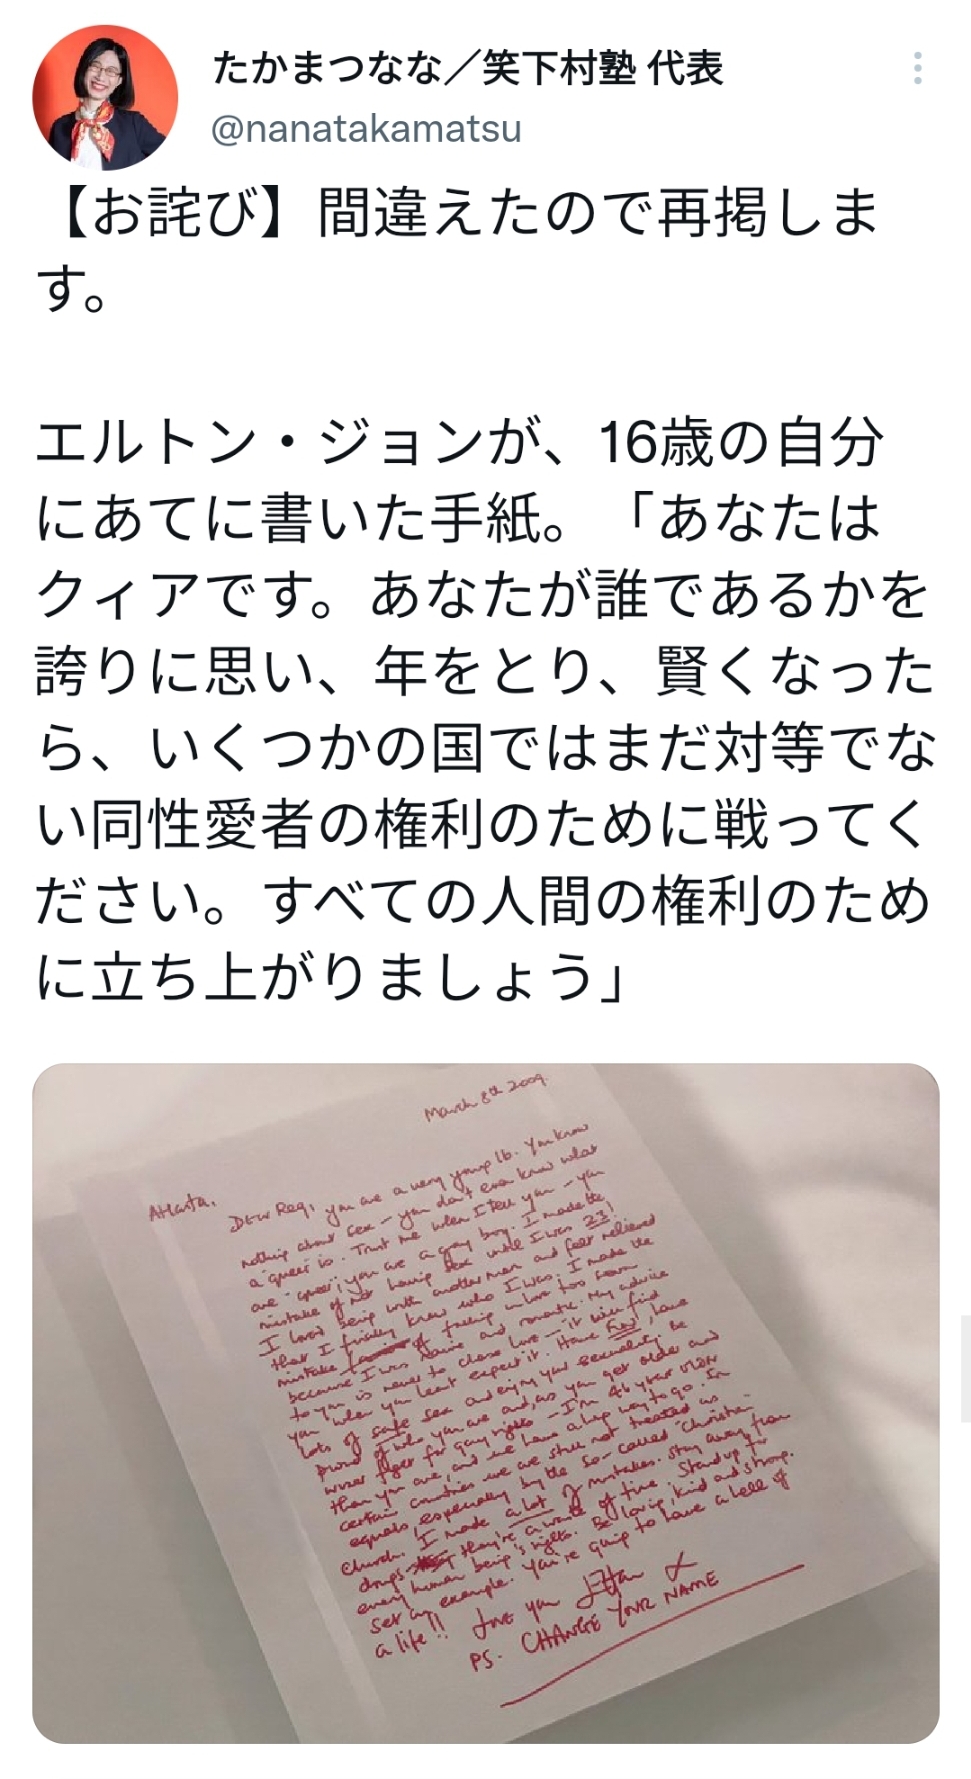 たかまつなな／笑下村塾 代表
@nanatakamatsu
【お詫び】間違えたので再掲しま
す。
エルトン・ジョンが、16歳の自分
にあてに書いた手紙。「あなたは
クィアです。あなたが誰であるかを
誇りに思い、年をとり、賢くなった
ら、いくつかの国ではまだ対等でな
い同性愛者の権利のために戦ってく
ださい。すべての人間の権利のため
に立ち上がりましょう」
March 8th 2009.
Atlanta.
Dear Reg, you are a very young 16. You know
nothing about sex – you don't even know what
a "queer" is. Trust me when I tell you – you
are "queer"; you are a gay boy. I made the
mistake of not having sex until I was 23!
I loved being with another man and felt relieved
that I finally knew who I was; I made the
mistake of falling in love too soon
because I was naive and romantic. My advice
to you is never to chase love – it will find
you when you least expect it. Have FUN, have
lots of safe sex and enjoy your sexuality. Be
proud of who you are and, as you get older and
wiser fight for gay rights – I'm 46 years older
than you are, and we have a long way to go. In
certain countries we are still not treated as
equals, especially by the so-called "Christian"
church. I made a lot of mistakes. Stay away from
drugs they're a waste of time. Stand up for
every human being's rights. Be loving, kind and strong.
Set an example. You're going to have a hell of
a life!! Love you Elton X
PS. CHANGE YOUR NAME